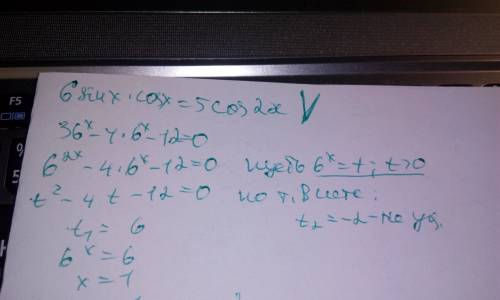 F5
%
5
6 sinx · cosx = 5 cos 2x V
36^x - 4 · 6^x - 12 = 0
6^{2x} - 4 · 6^x - 12 = 0 пусть 6^x = t; t > 0
t^2 - 4t - 12 = 0 по т. Виета:
t_1 = 6 t_2 = -2 - не уд.
6^x = 6
x = 1